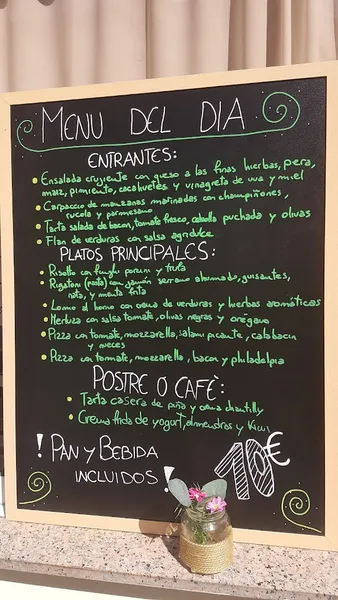 MENU DEL DIA
ENTRANTES:
• Ensalada crujiente con queso a las finas hierbas, pera,
maiz, pimiento, cacahuetes y vinagreta de uva y miel
• Carpaccio de manzanas marinadas con champiñones,
rucola y parmesano
• Tarta salada de bacon, tomate fresco, cebolla puchada y olivas
• Flan de verduras con salsa agridulce
PLATOS PRINCIPALES:
• Risotto con funghi porcini y
• Rigatoni (pasta) con jamón serrano ahumado, guisantes,
nata, y menta frita
• Lomo al horno con crema de verduras y hierbas aromáticas
• Merluza con salsa tomate, olivas negras y orégano
• Pizza con tomate, mozzarella, salami picante, calabacin
y nueces
• Pizza con tomate, mozzarella, bacon y philadelpia
POSTRE O CAFÈ:
• Tarta casera de piña y crema chantilly
• Crema frida de yogurt, almendras y Kiwi
! PAN Y BEBIDA
INCLUIDOS !
10€